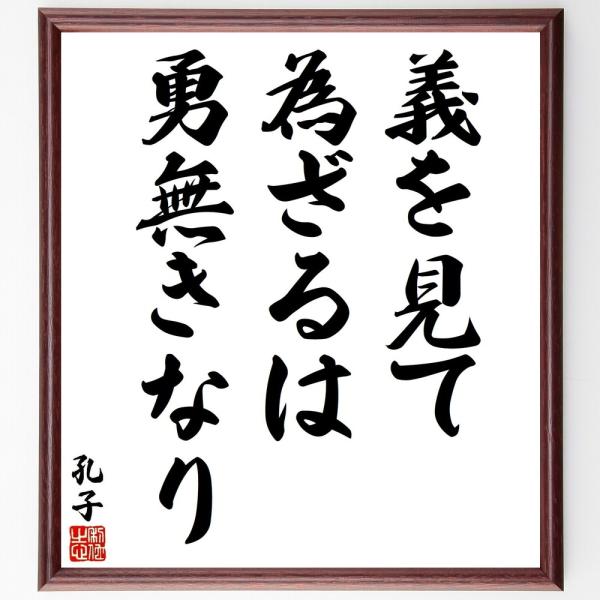 義を見て
為ざるは
勇無きなり
孔子